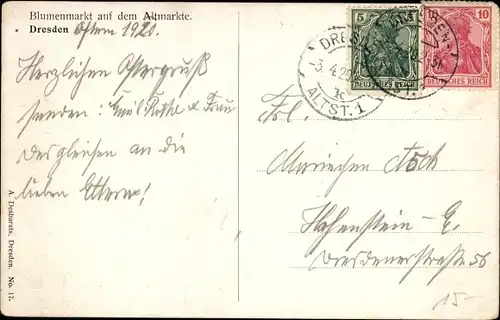 Blumenmarkt auf dem Altmarkte.
Dresden Ostern 1920.
Herzlichen Ostergruß
senden: Emil Rothe & Frau
desgleichen an die
lieben Eltern!
A. Desbarats, Dresden. No. 17.
5
DEUTSCHES REICH
10
DEUTSCHES REICH
DRESDEN
-3.4.20
ALTST. 1
Frl.
Mariechen
Hohenstein-E.
Dresdenerstraße 56
15-